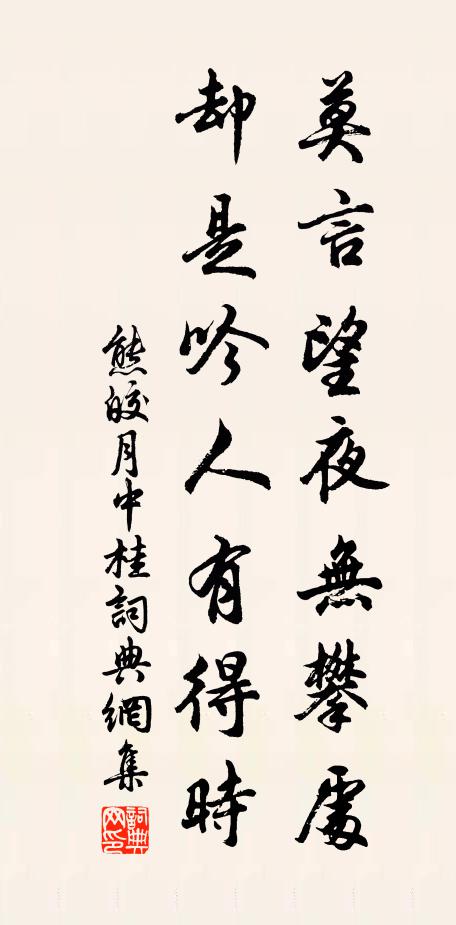 莫言望夜無攀處
却是吟人有得時
熊皎月中桂詞典網集
詞典網印